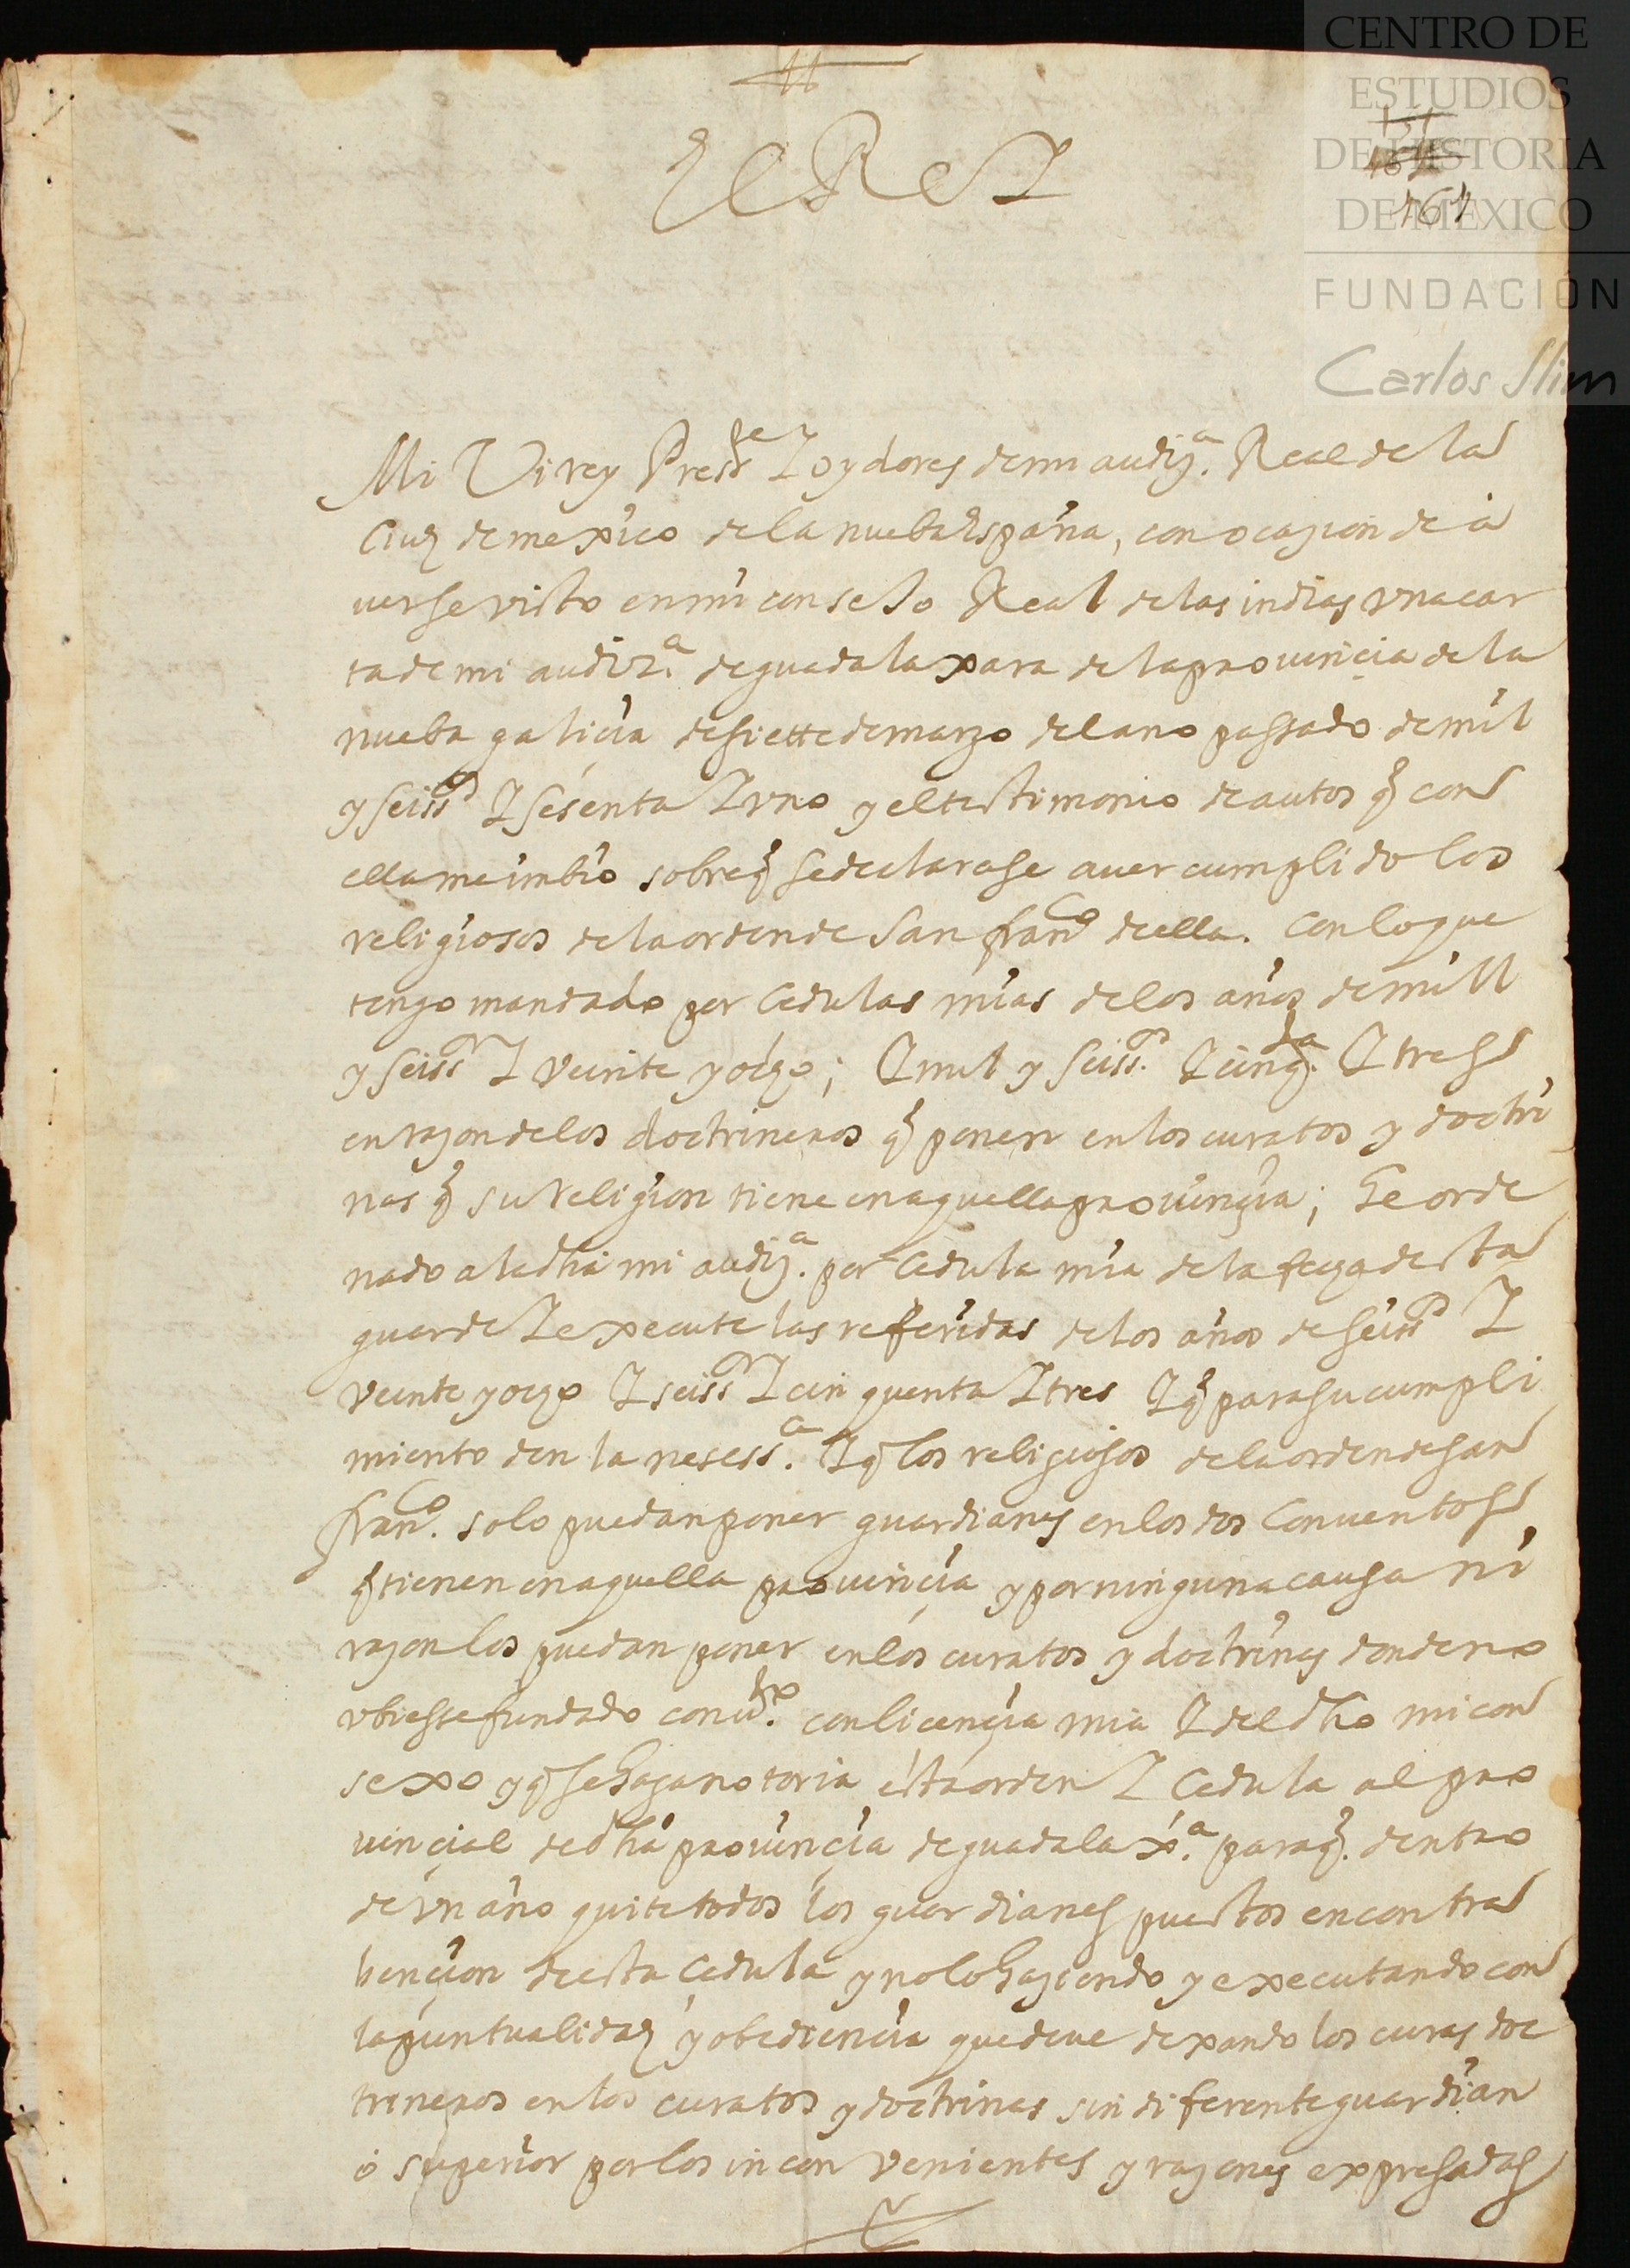 CENTRO DE
ESTUDIOS
DE HISTORIA
DE MÉXICO
FUNDACIÓN
Carlos Slim
161
El Rey
Mi Virey Press.te y oydores de mi audiz.a Real de la
Ciud de mexico de la nueba españa, con ocazion de a
uerse visto en mi consejo Real de las indias vna car
ta de mi audiz.a de guadalaxara de la prouincia de la
nueba galicia de siette de marzo del año passado de mil
y seiss.os y sesenta y vno y el testimonio de autos q con
ella me imbio sobre q se declarase auer cumplido los
religiosos de la orden de San fran.co de ella. con lo que
tengo mandado por Cedulas mias de los años de mill
y seiss.os y veinte y ocho; y mil y seiss.os y cinq.ta y tres
en razon de los doctrineros q ponen en los curatos y doctri
nas q su religion tiene en aquella prouincia; he orde
nado a la dha mi audiz.a por Cedula mia de la fecha de esta
guarde y execute las referidas de los años de seiss.os y
veinte y ocho y seiss.os y cinquenta y tres y q para su cumpli
miento den la nesess.a y q los religiosos de la orden de san
fran.co solo puedan poner guardianes en los dos Conuentos
q tienen en aquella prouincia y por ninguna causa ni
razon los puedan poner en los curatos y doctrinas donde no
vbiesse fundado conu.to con licencia mia y del dho mi con
sexo y q se haga notoria esta orden y Cedula al pro
uincial de dha prouincia de guadalax.a para q. dentro
de vn año quite todos los guardianes puestos en contra
bencion de esta cedula y no lo haziendo y executando con
la puntualidad y obediencia que deue dexando los curas doc
trineros en los curatos y doctrinas sin diferente guardian
o superior por los inconvenientes y razones expresadas